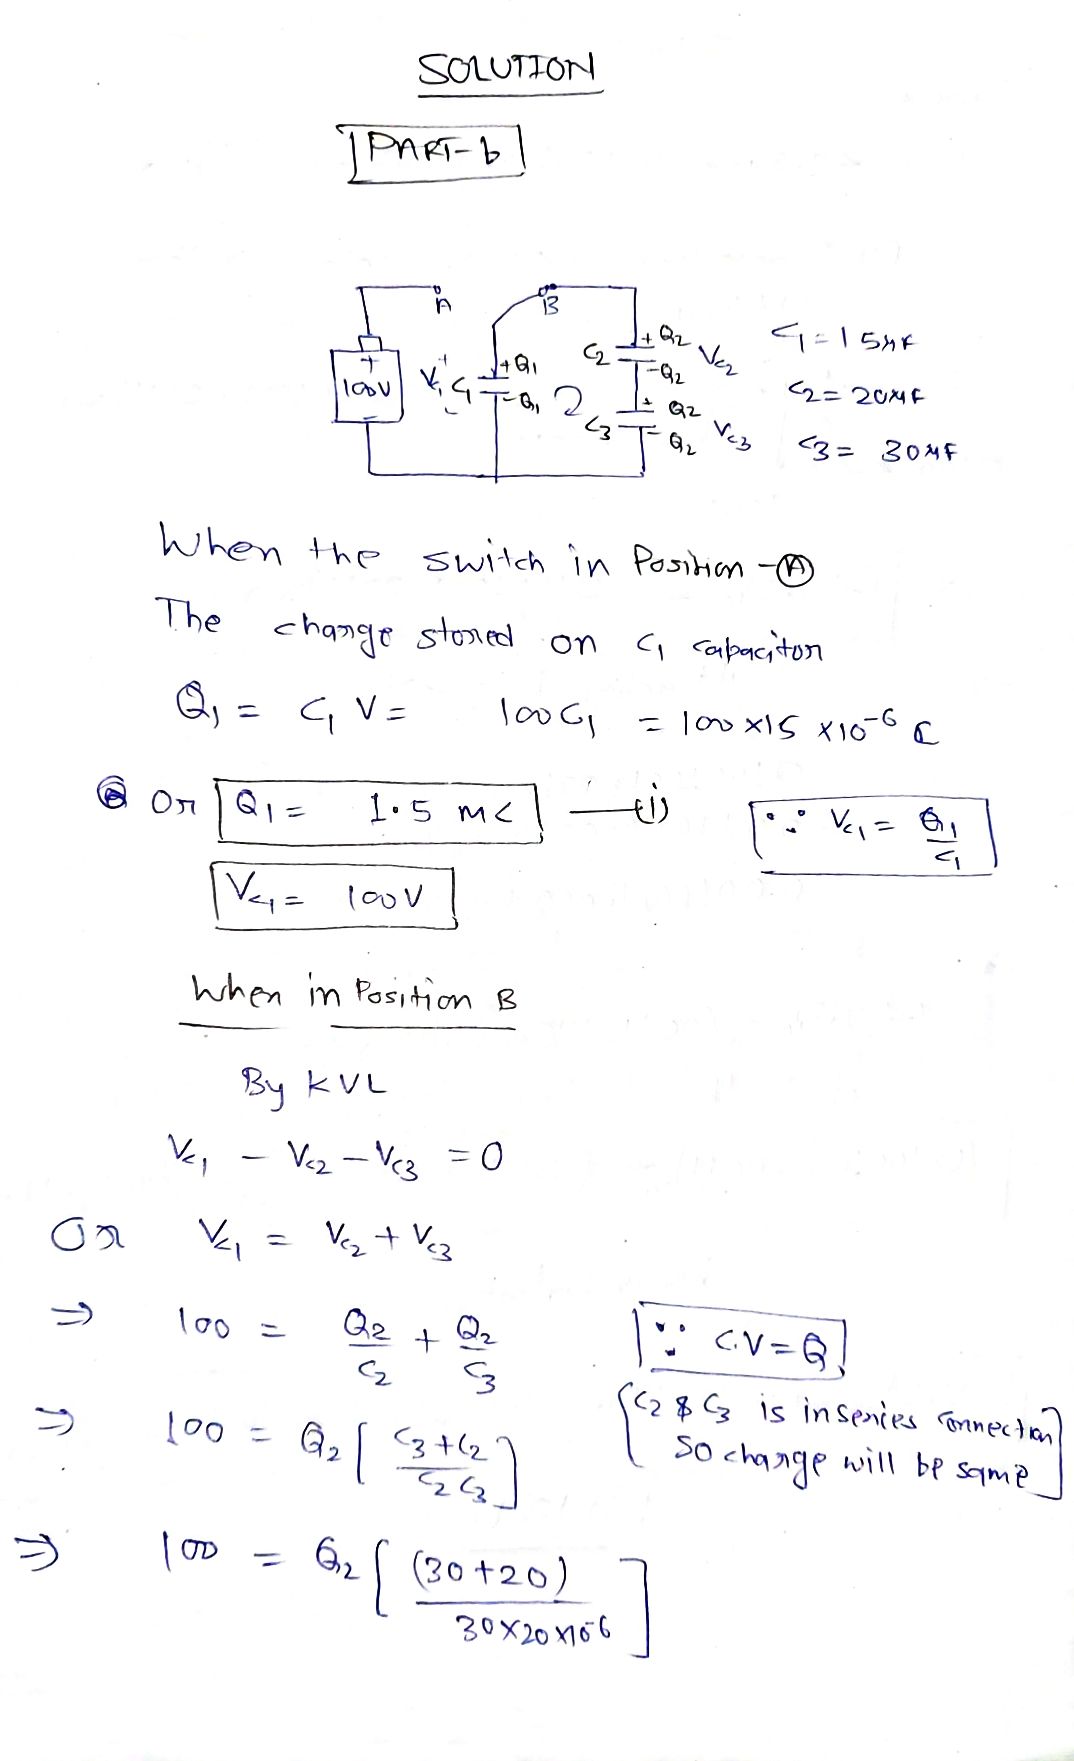 SOLUTION
PART-b
A
B
+
100V
V₁
+
-
C₁
+Q₁
-Q₁
C₂
+Q₂
-Q₂
Vc₂
C₃
+ Q₂
- Q₂
Vc₃
C₁ = 15μF
C₂ = 20μF
C₃ = 30μF
When the switch in Position - Ⓐ
The charge stored on C₁ capacitor
Q₁ = C₁ V = 100C₁ = 100 × 15 × 10⁻⁶ C
Or Q₁ = 1.5 mC —(i)
∵ Vc₁ = Q₁/C₁
Vc₁ = 100V
When in Position B
By KVL
Vc₁ - Vc₂ - Vc₃ = 0
Or Vc₁ = Vc₂ + Vc₃
⇒ 100 = Q₂/C₂ + Q₂/C₃
∵ C.V = Q
{C₂ & C₃ is in series connection
so charge will be same}
⇒ 100 = Q₂ [(C₃+C₂)/(C₂C₃)]
⇒ 100 = Q₂ [(30+20)/(30×20×10⁻⁶)]